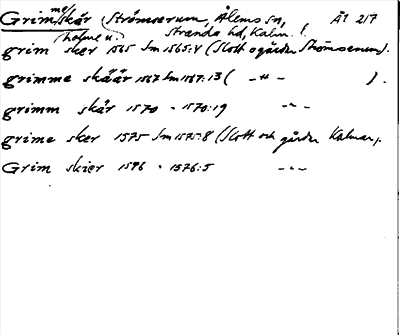 Grimmeskär (Strömserum, Ålems sn, Äl 217
holme u. Stranda hd, Kalm. l.
grim sker 1565 Sm 1565:4 (Slott o gården Strömserum).
grimme skäär 1567 Sm 1567:13 ( -"- ).
grimm skär 1570 - 1570:19 -"-
grime sker 1575 Sm 1575:8 (Slott och gården Kalmar).
Grim skier 1576 - 1576:5 -"-